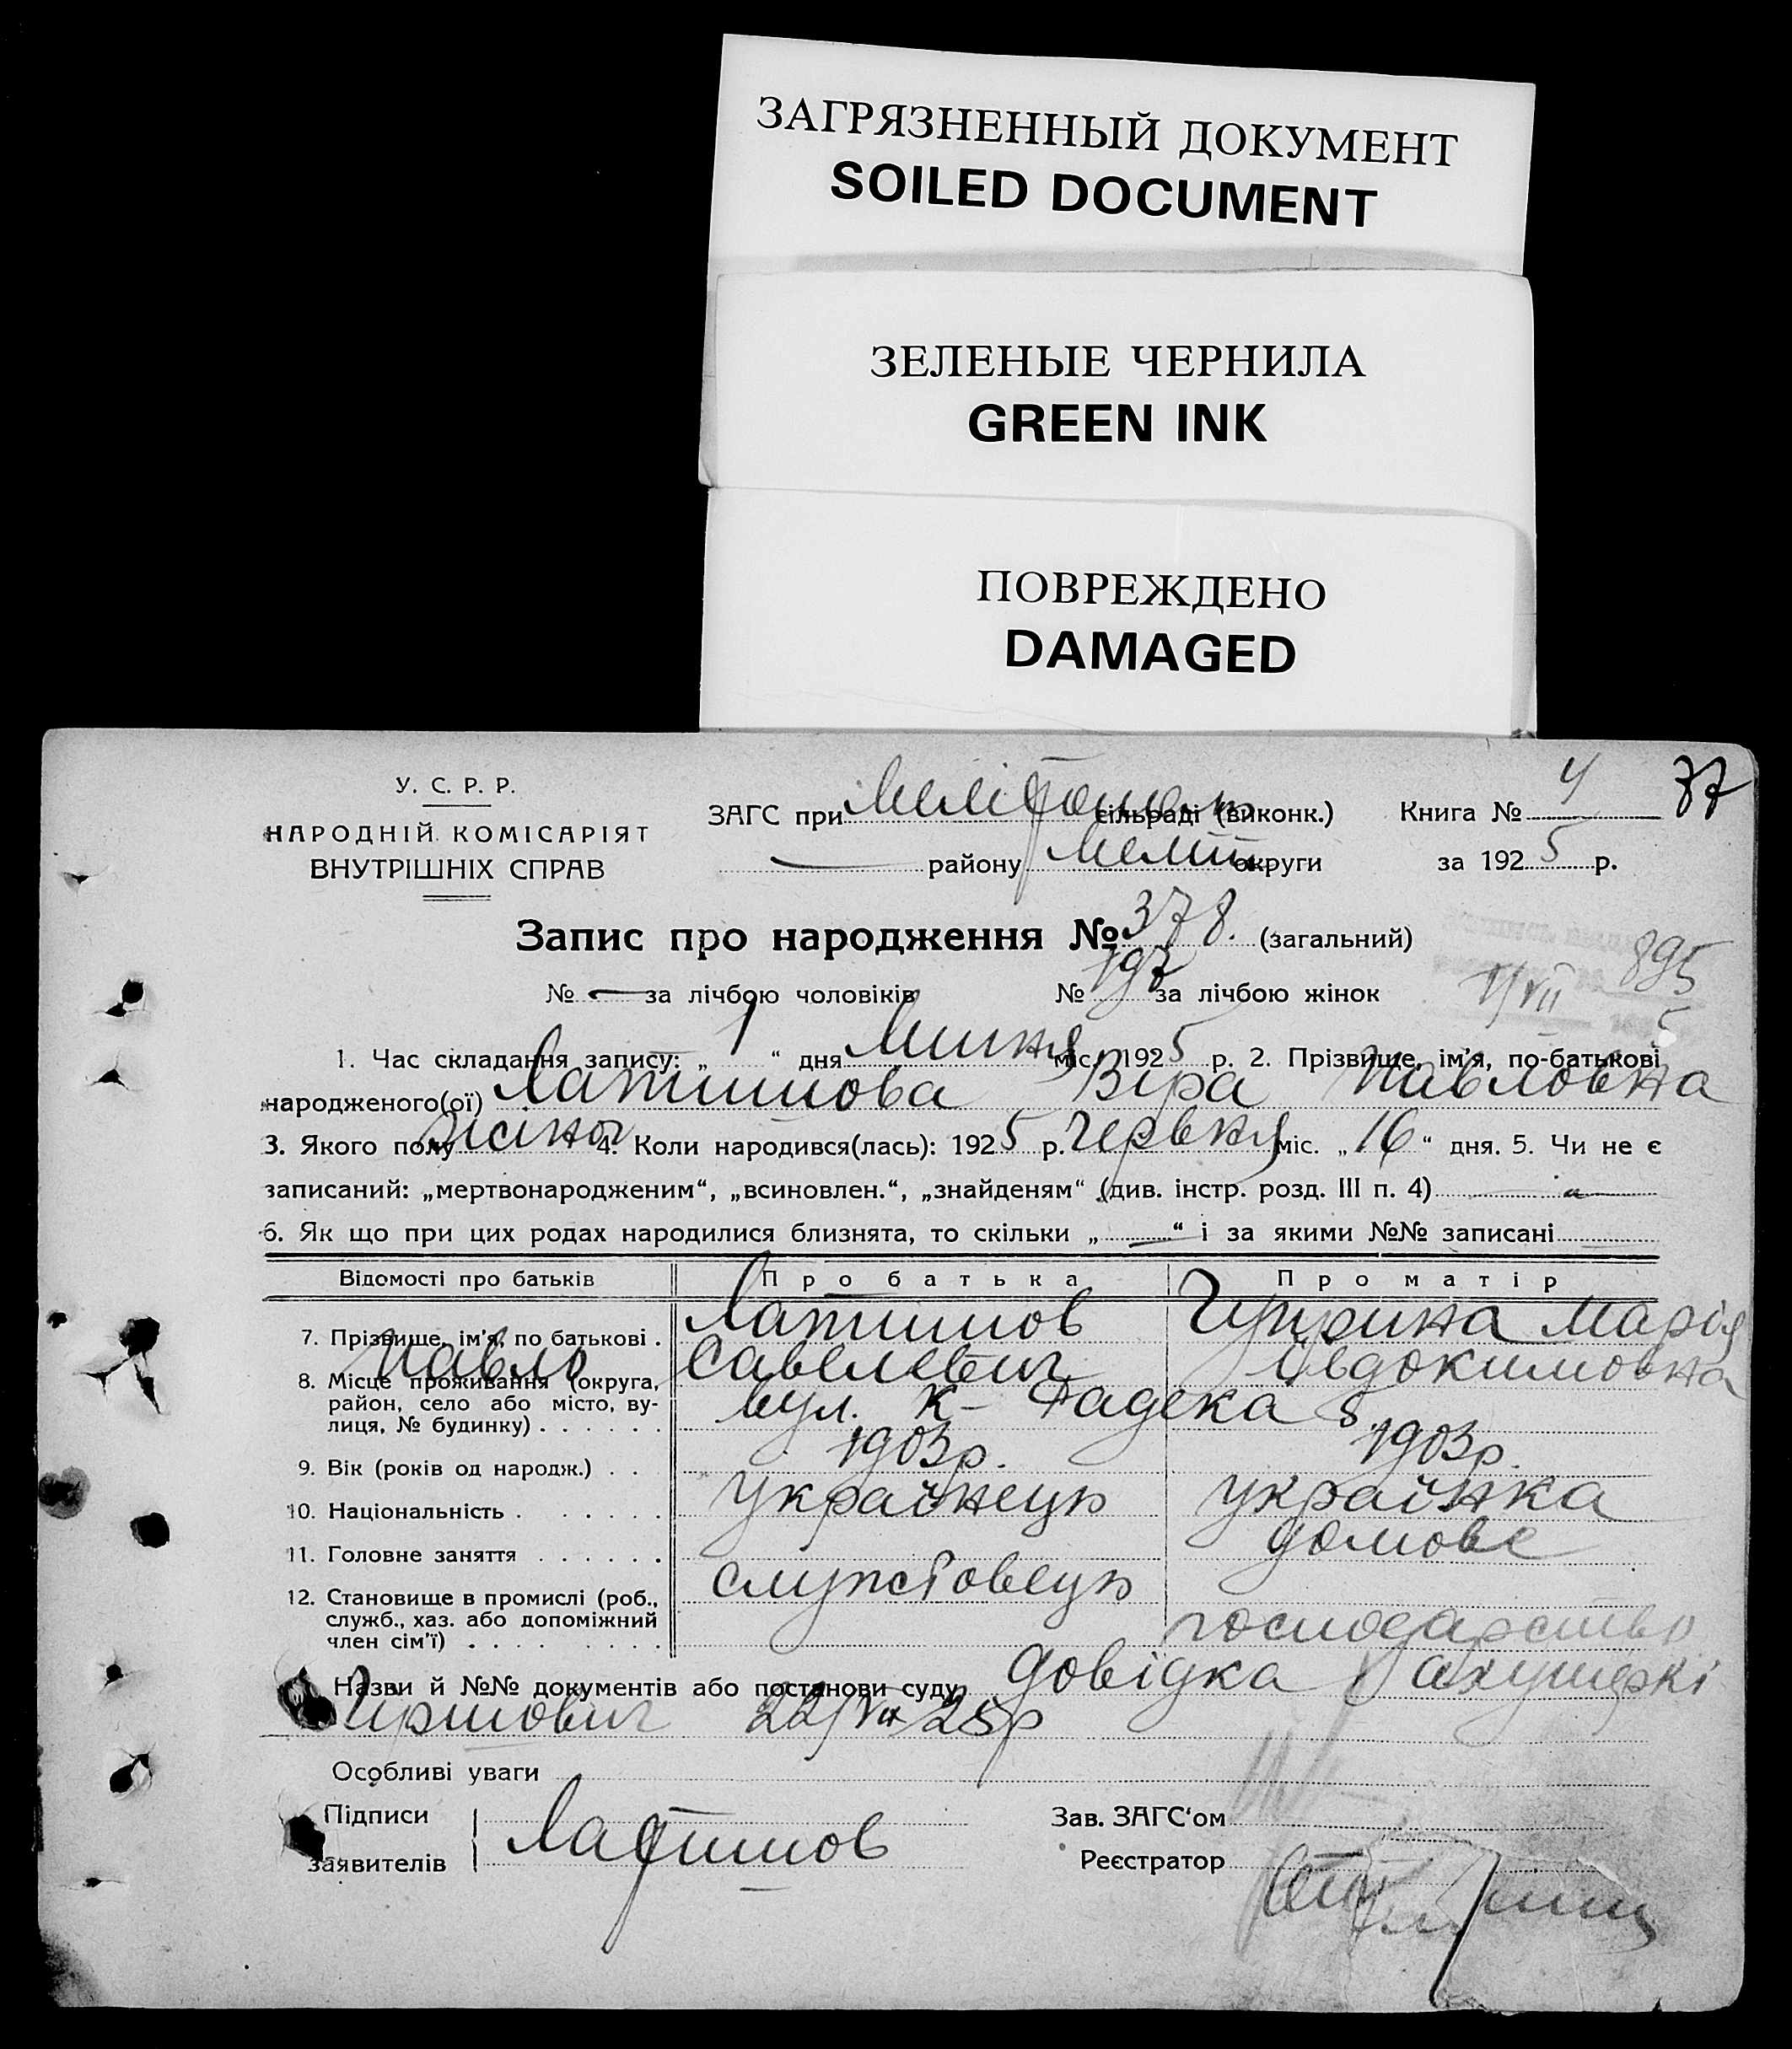 ЗАГРЯЗНЕННЫЙ ДОКУМЕНТ
SOILED DOCUMENT
ЗЕЛЕНЫЕ ЧЕРНИЛА
GREEN INK
ПОВРЕЖДЕНО
DAMAGED
У. С. Р. Р.
НАРОДНІЙ КОМІСАРІЯТ
ВНУТРІШНІХ СПРАВ
ЗАГС при Мелітополь сільраді (виконк.) Книга № 4 37
— району Меліт. округи за 1925 р.
Запис про народження № 378. (загальний)
895
№ — за лічбою чоловіків № 197 за лічбою жінок
1/VII 5
1. Час складання запису: „ 1 “ дня Липня міс. 1925 р. 2. Прізвище, ім’я, по-батькові
народженого(ої) Латишова Віра Павловна
3. Якого полу жіноч 4. Коли народився(лась): 1925 р. Червня міс. „16“ дня. 5. Чи не є
записаний: „мертвонародженим“, „всиновлен.“, „знайденям“ (див. інстр. розд. III п. 4) —
6. Як що при цих родах народилися близнята, то скільки „ — “ і за якими №№ записані
Відомості про батьків Про батька Про матір
7. Прізвище, ім’я, по батькові . Латишов Чуприна Марія
Павло Савелевич Овдокимовна
8. Місце проживання (округа,
район, село або місто, ву-
лиця, № будинку) . . . . . . вул. К- Фадека 8.
9. Вік (років од народж.) . . 1903р. 1903р.
10. Національність . . . . . . українець українка
11. Головне заняття . . . . . . домове
12. Становище в промислі (роб.,
служб., хаз. або допоміжний
член сім’ї) . . . . . . . . . службовець господарство
Назви й №№ документів або постанови суду довідка акушерки
22/VI 25р
Особливі уваги
Підписи
заявителів Латишов
Зав. ЗАГС‘ом
Реєстратор